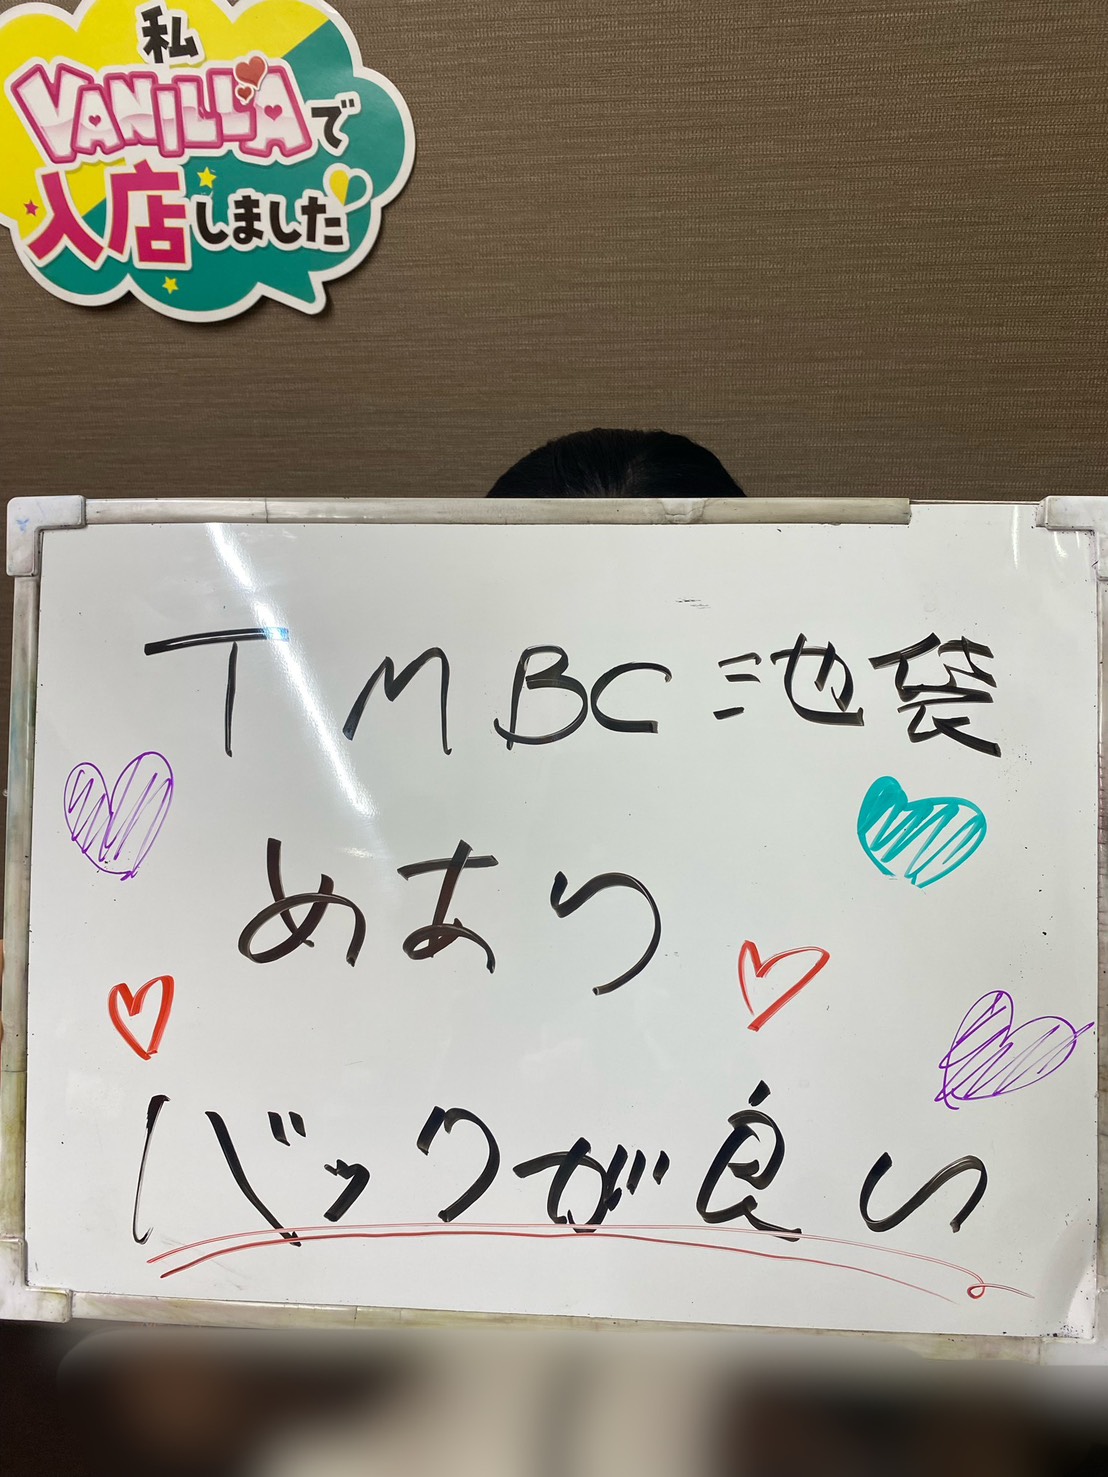 私
VANILLAで
入店しました
TMBC池袋
めあり
バックが良い